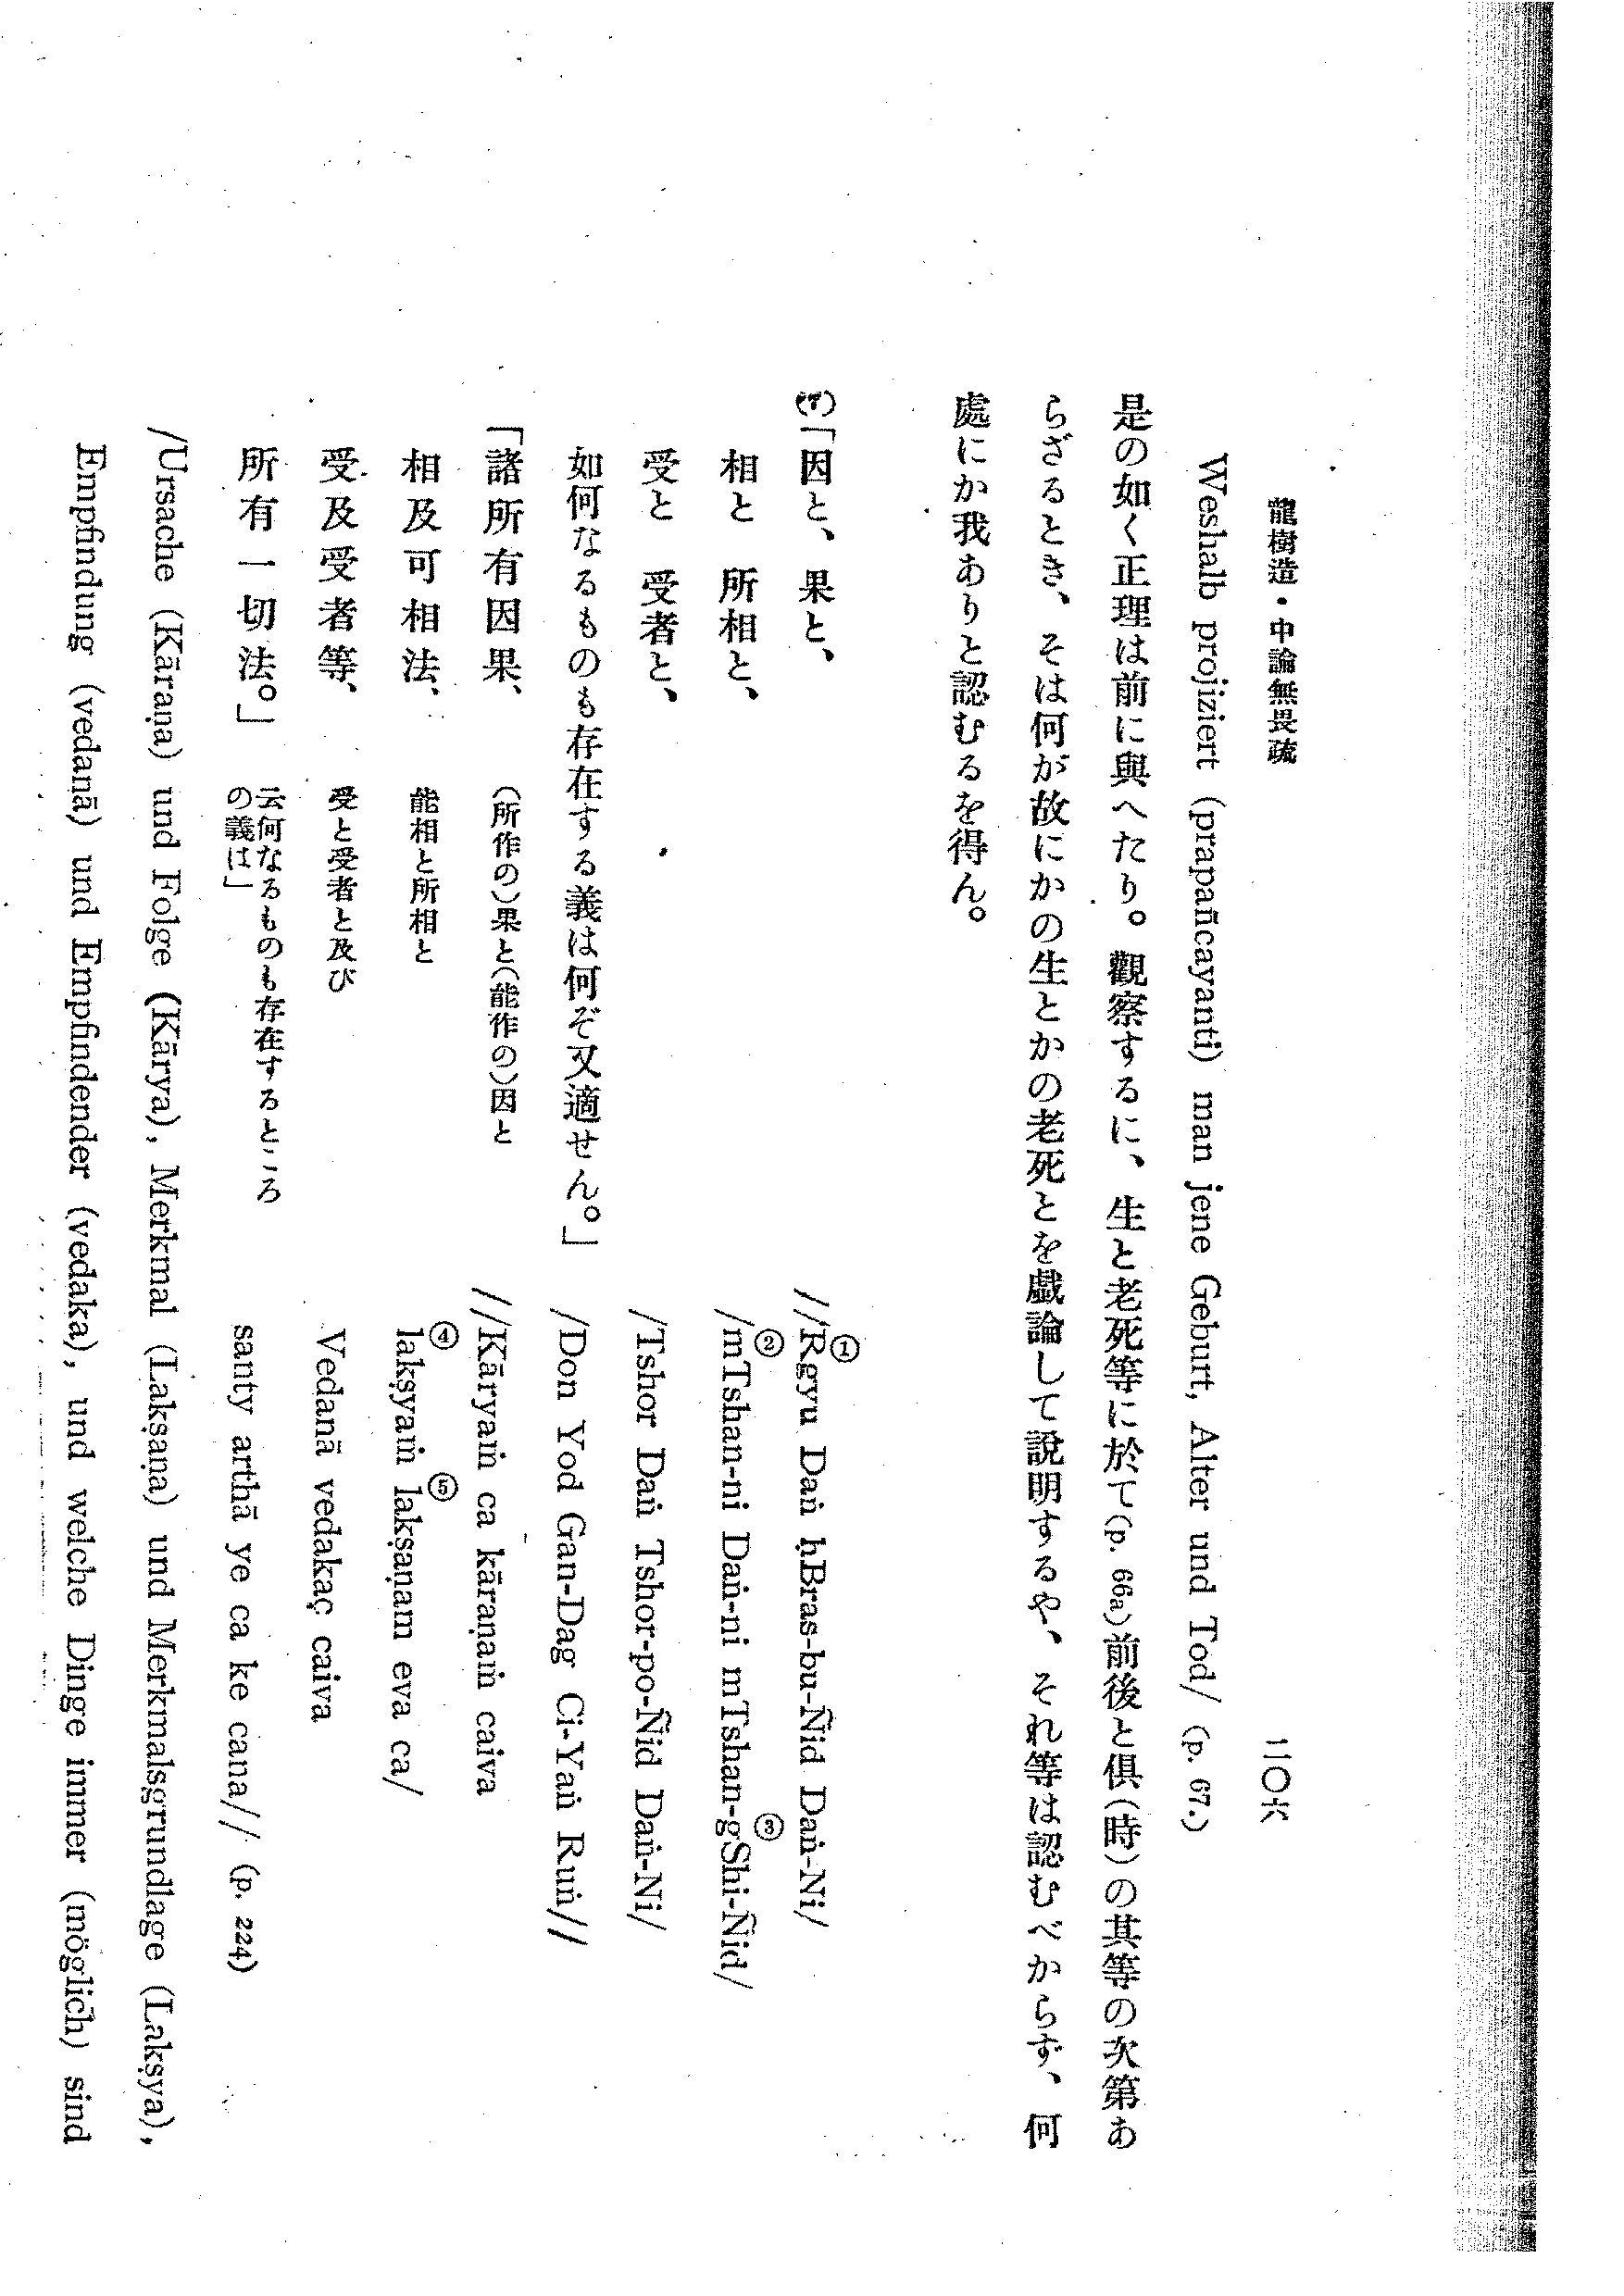 龍樹造・中論無畏疏
二〇六
Weshalb projiziert (prapañcayanti) man jene Geburt, Alter und Tod/ (p. 67.)
是の如く正理は前に與へたり。觀察するに、生と老死等に於て(p. 66a)前後と俱(時)の其等の次第あ
らざるとき、そは何が故にかの生とかの老死とを戯論して說明するや、それ等は認むべからず、何
處にか我ありと認むるを得ん。
(7)「因と、果と、
//Rgyu① Daṅ ḥBras-bu-Ñid Daṅ-Ni/
相と 所相と、
/mTshan-ni② Daṅ-ni mTshan-gShi-Ñid③/
受と 受者と、
/Tshor Daṅ Tshor-po-Ñid Daṅ-Ni/
如何なるものも存在する義は何ぞ又適せん。」
/Don Yod Gan-Dag Ci-Yaṅ Ruṅ//
「諸所有因果、 (所作の)果と(能作の)因と
//Kāryaṁ ca kāraṇaṁ caiva
相及可相法、 能相と所相と
lakṣyaṁ④ lakṣaṇam⑤ eva ca/
受及受者等、 受と受者と及び
Vedanā vedakaç caiva
所有一切法。」 云何なるものも存在するところ
の義は」
santy arthā ye ca ke cana// (p. 224)
/Ursache (Kāraṇa) und Folge (Kārya), Merkmal (Lakṣaṇa) und Merkmalsgrundlage (Lakṣya),
Empfindung (vedaṇā) und Empfindender (vedaka), und welche Dinge immer (möglich) sind